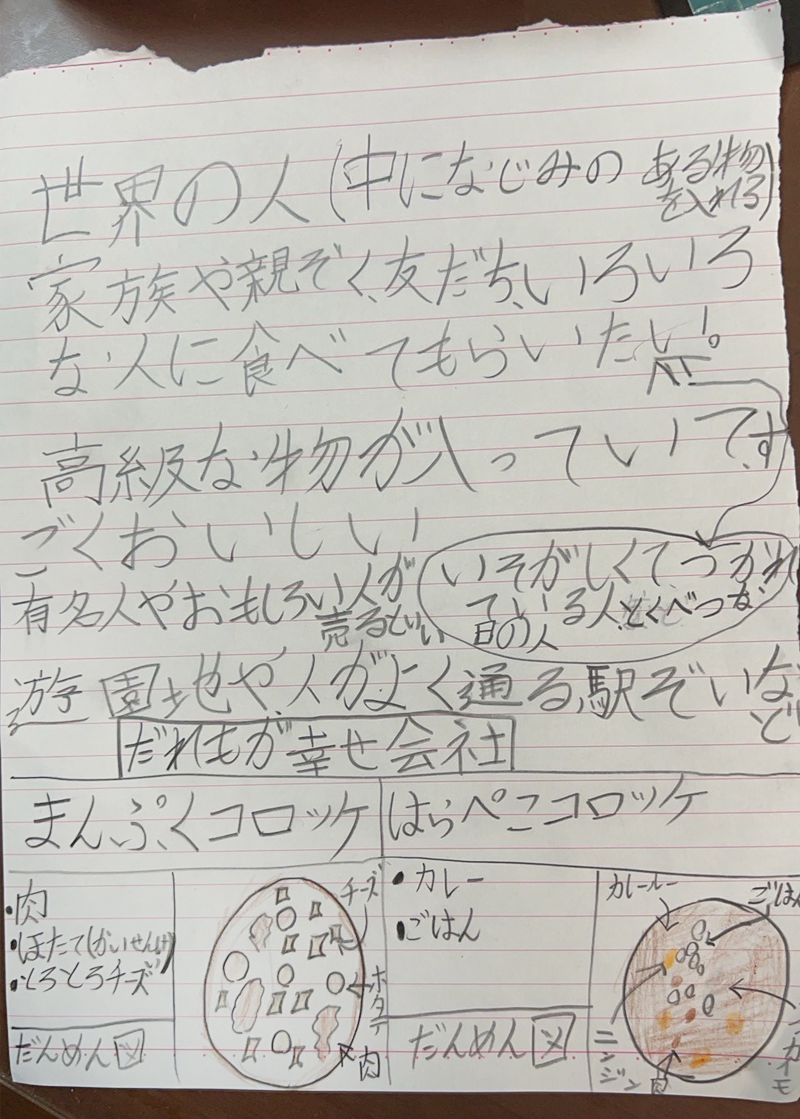 世界の人(中になじみのある物を入れる)
家族や親ぞく、友だち、いろいろ
な人に食べてもらいたい!。
高級な物が入っていてす
ごくおいしい
いそがしくてつかれ
ている人、とくべつな
日の人
有名人やおもしろい人が
売るといい
遊園地や、人がよく通る駅ぞいな
ど
だれもが幸せ会社
まんぷくコロッケ
はらぺこコロッケ
・肉
・ほたて(かいせん)
・とろとろチーズ
だんめん図
チーズ
ホタテ
肉
・カレー
・ごはん
だんめん図
カレールー
ごはん
ニンジン
肉